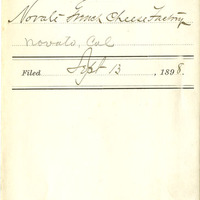 Novato French Cheese Factory
Novato, Cal
Filed Sept 13, 1898.